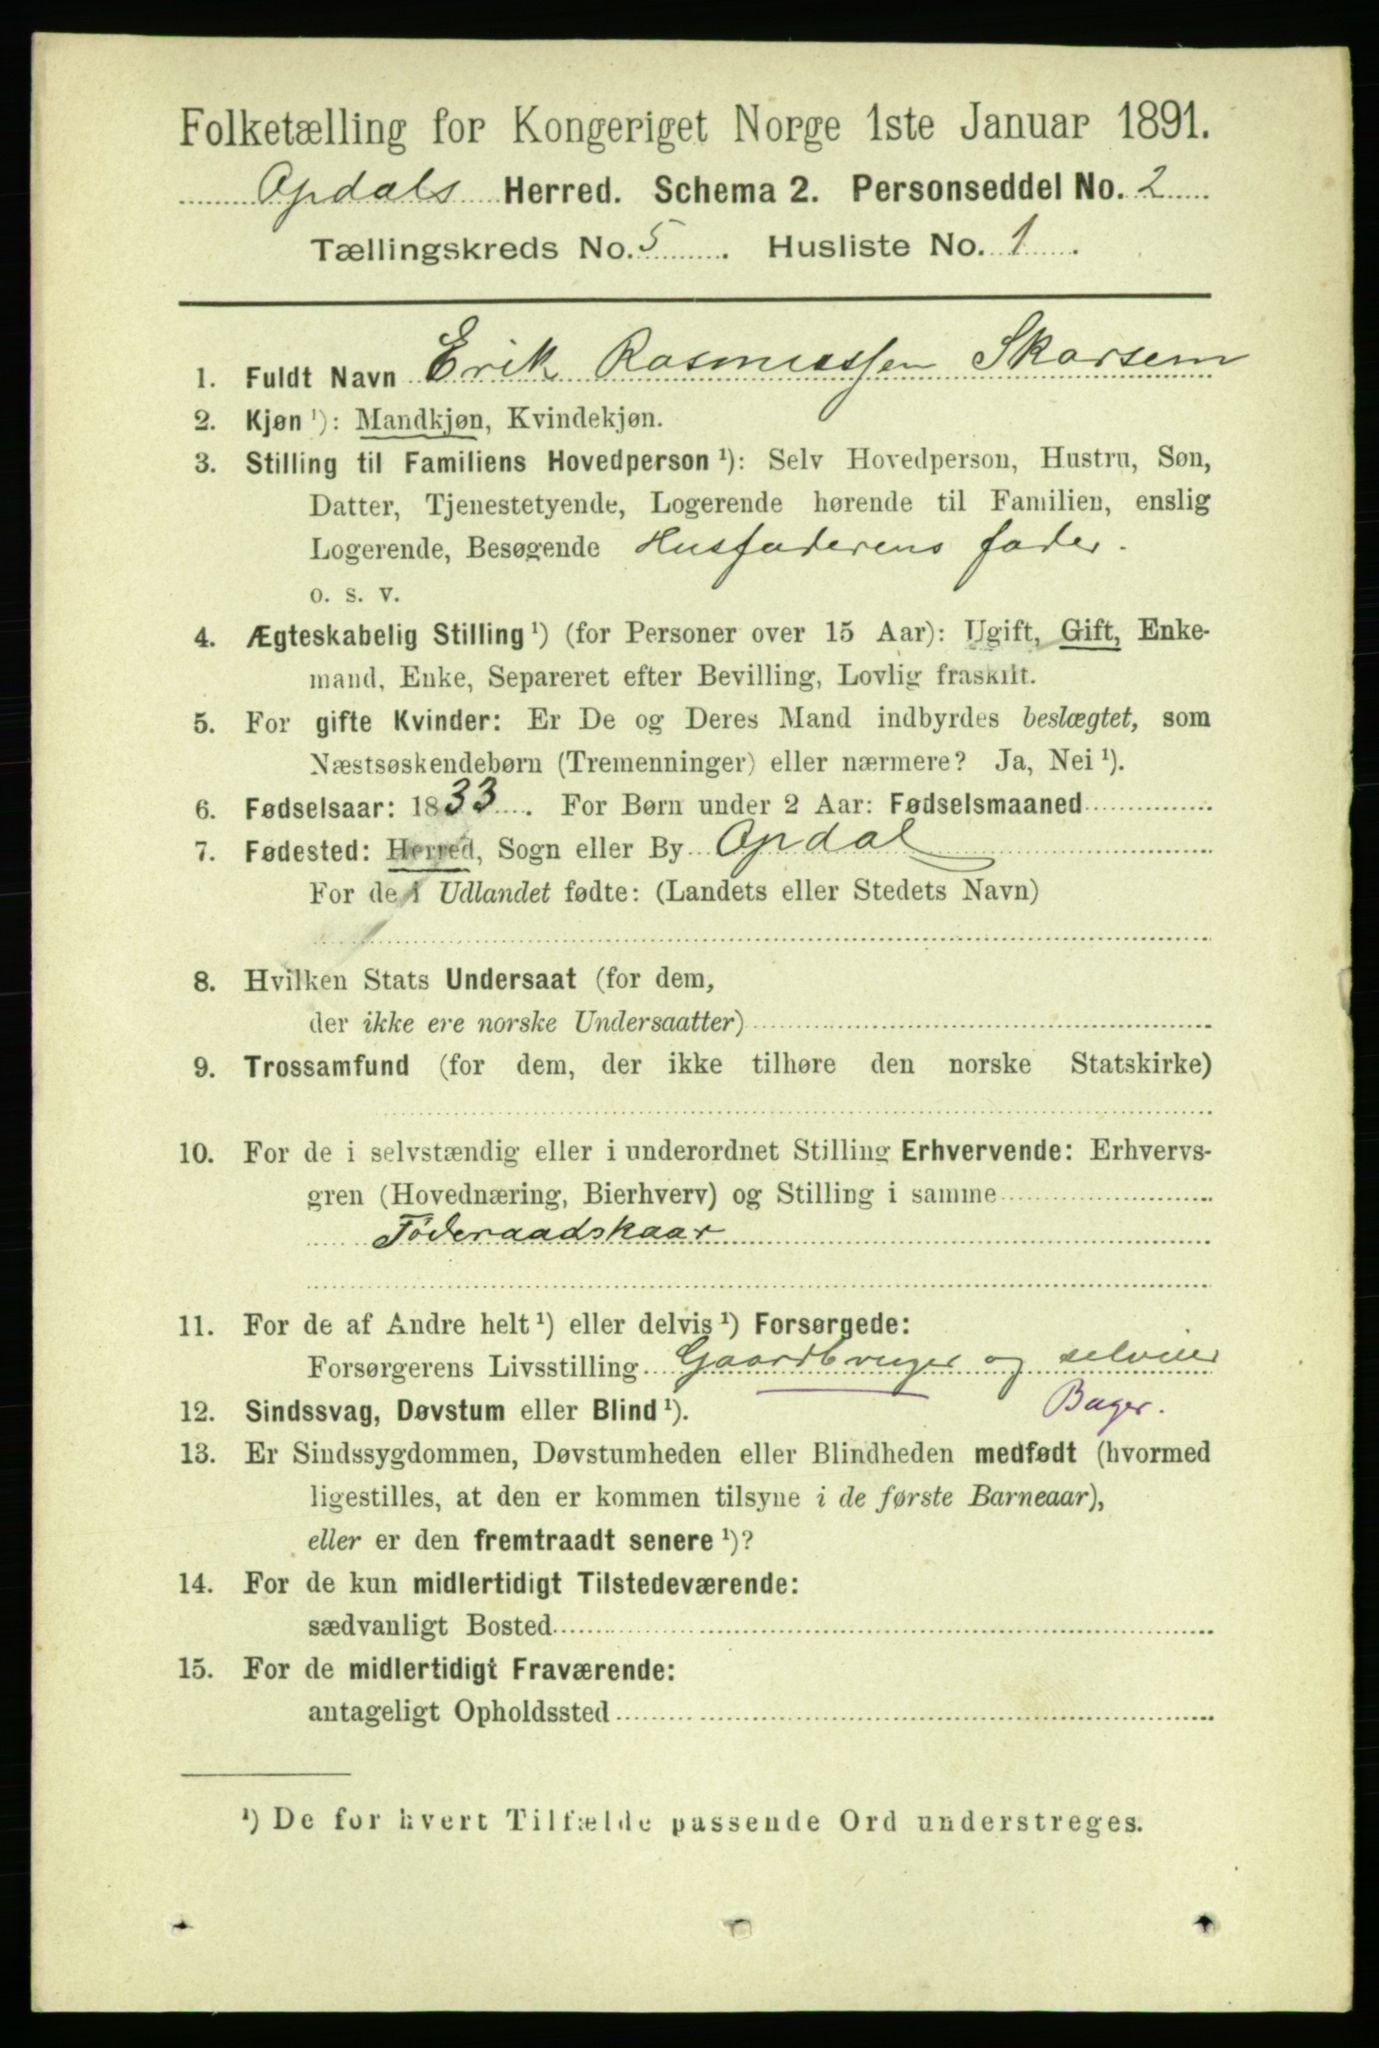 Folketælling for Kongeriget Norge 1ste Januar 1891.
Opdals Herred. Schema 2. Personseddel No. 2
Tællingskreds No. 5. Husliste No. 1.
1. Fuldt Navn Erik Rasmussen Skarsem
2. Kjøn ¹): Mandkjøn, Kvindekjøn.
3. Stilling til Familiens Hovedperson ¹): Selv Hovedperson, Hustru, Søn,
Datter, Tjenestetyende, Logerende hørende til Familien, enslig
Logerende, Besøgende Husfaderens fader.
o. s. v.
4. Ægteskabelig Stilling ¹) (for Personer over 15 Aar): Ugift, Gift, Enke-
mand, Enke, Separeret efter Bevilling, Lovlig fraskilt.
5. For gifte Kvinder: Er De og Deres Mand indbyrdes beslægtet, som
Næstsøskendebørn (Tremenninger) eller nærmere? Ja, Nei ¹).
6. Fødselsaar: 1833. For Børn under 2 Aar: Fødselsmaaned
7. Fødested: Herred, Sogn eller By Opdal
For de i Udlandet fødte: (Landets eller Stedets Navn)
8. Hvilken Stats Undersaat (for dem,
der ikke ere norske Undersaatter)
9. Trossamfund (for dem, der ikke tilhøre den norske Statskirke)
10. For de i selvstændig eller i underordnet Stilling Erhvervende: Erhvervs-
gren (Hovednæring, Bierhverv) og Stilling i samme
Föderaadskaar
11. For de af Andre helt ¹) eller delvis ¹) Forsørgede:
Forsørgerens Livsstilling Gaardbruger og selveier
Bager.
12. Sindssvag, Døvstum eller Blind ¹).
13. Er Sindssygdommen, Døvstumheden eller Blindheden medfødt (hvormed
ligestilles, at den er kommen tilsyne i de første Barneaar),
eller er den fremtraadt senere ¹)?
14. For de kun midlertidigt Tilstedeværende:
sædvanligt Bosted
15. For de midlertidigt Fraværende:
antageligt Opholdssted
¹) De for hvert Tilfælde passende Ord understreges.